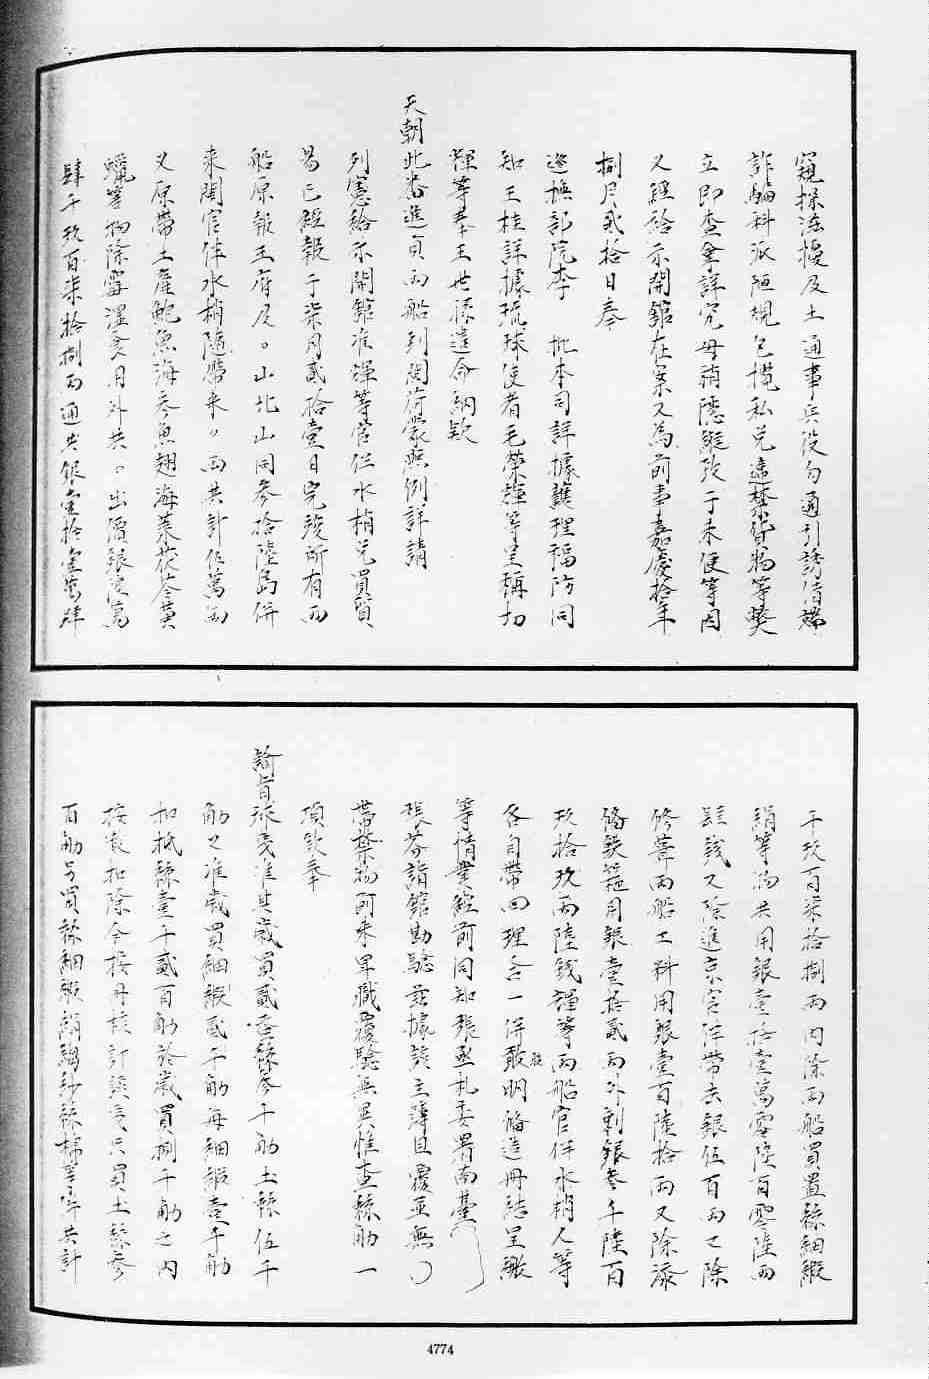 窺探法擾及土通事兵役勾通引誘借端
詐騙科派陋規包攬私兌違禁貨物等獘
立即查拿詳究毋稍隱縱致于未便等因
又經給示開館在案又為前事嘉慶拾年
捌月貳拾日奉
巡撫部院李　批本司詳據護理福防同
知王桂詳據琉球使者毛榮輝等呈稱切
輝等奉王世孫遣命納款
天朝此番進貢兩船到閩荷蒙照例詳請
列憲給示開館准輝等官伴水梢兌買貿
易已經報于柒月貳拾壹日完竣所有兩
船原報王府及。山北山同參拾陸島併
來閩官伴水梢隨帶來。兩共計伍萬兩
又原帶土產鮑魚海參魚翅海菜茯苓黃
蠟等物除霉溼食用外共。出價銀陸萬
肆千玖百柒拾捌兩通共銀壹拾壹萬肆
千玖百柒拾捌兩內除兩船買置絲紬緞
絹等物共用銀壹拾壹萬零陸百零陸兩
肆錢又除進京官伴帶去銀伍百兩又除
修葺兩船工料用銀壹百陸拾兩又除添
備鉄箍用銀壹拾貳兩外剩銀參千陸百
玖拾玖兩陸錢謹等兩船官伴水梢人等
各自帶回理合一併聲明備造冊結呈繳
等情業經前同知張丞札委署南臺
張芬詣館勘驗茲據該主薄具覆並無
帶禁物前來卑職覆驗無異惟查絲觔一
項欽奉
諭旨琉夷准其歲買貳蚕絲參千觔土絲伍千
觔又准歲買紬緞貳千觔每紬緞壹千觔
扣抵絲壹千貳百觔於歲買捌千觔之內
按數扣除今按冊核計該夷只買土絲參
百觔另買絲紬緞絹綢紗絲棉等字共計
4774